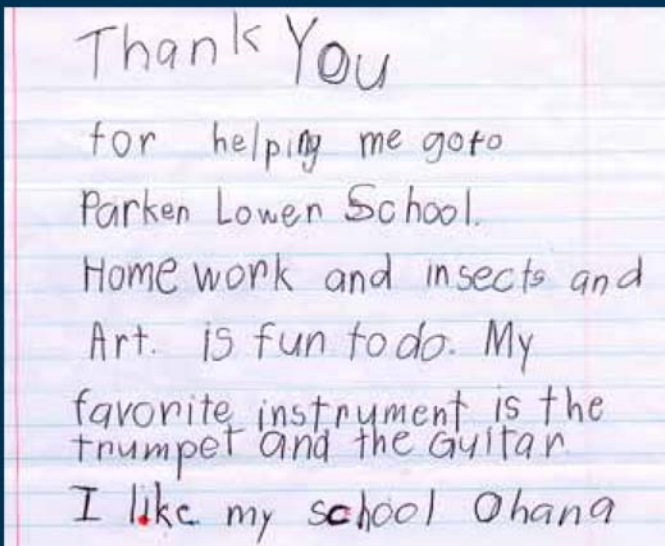 Thank You
for helping me goto
Parker Lower School.
Homework and insects and
Art. is fun to do. My
favorite instrument is the
trumpet and the Guitar
I like my school Ohana